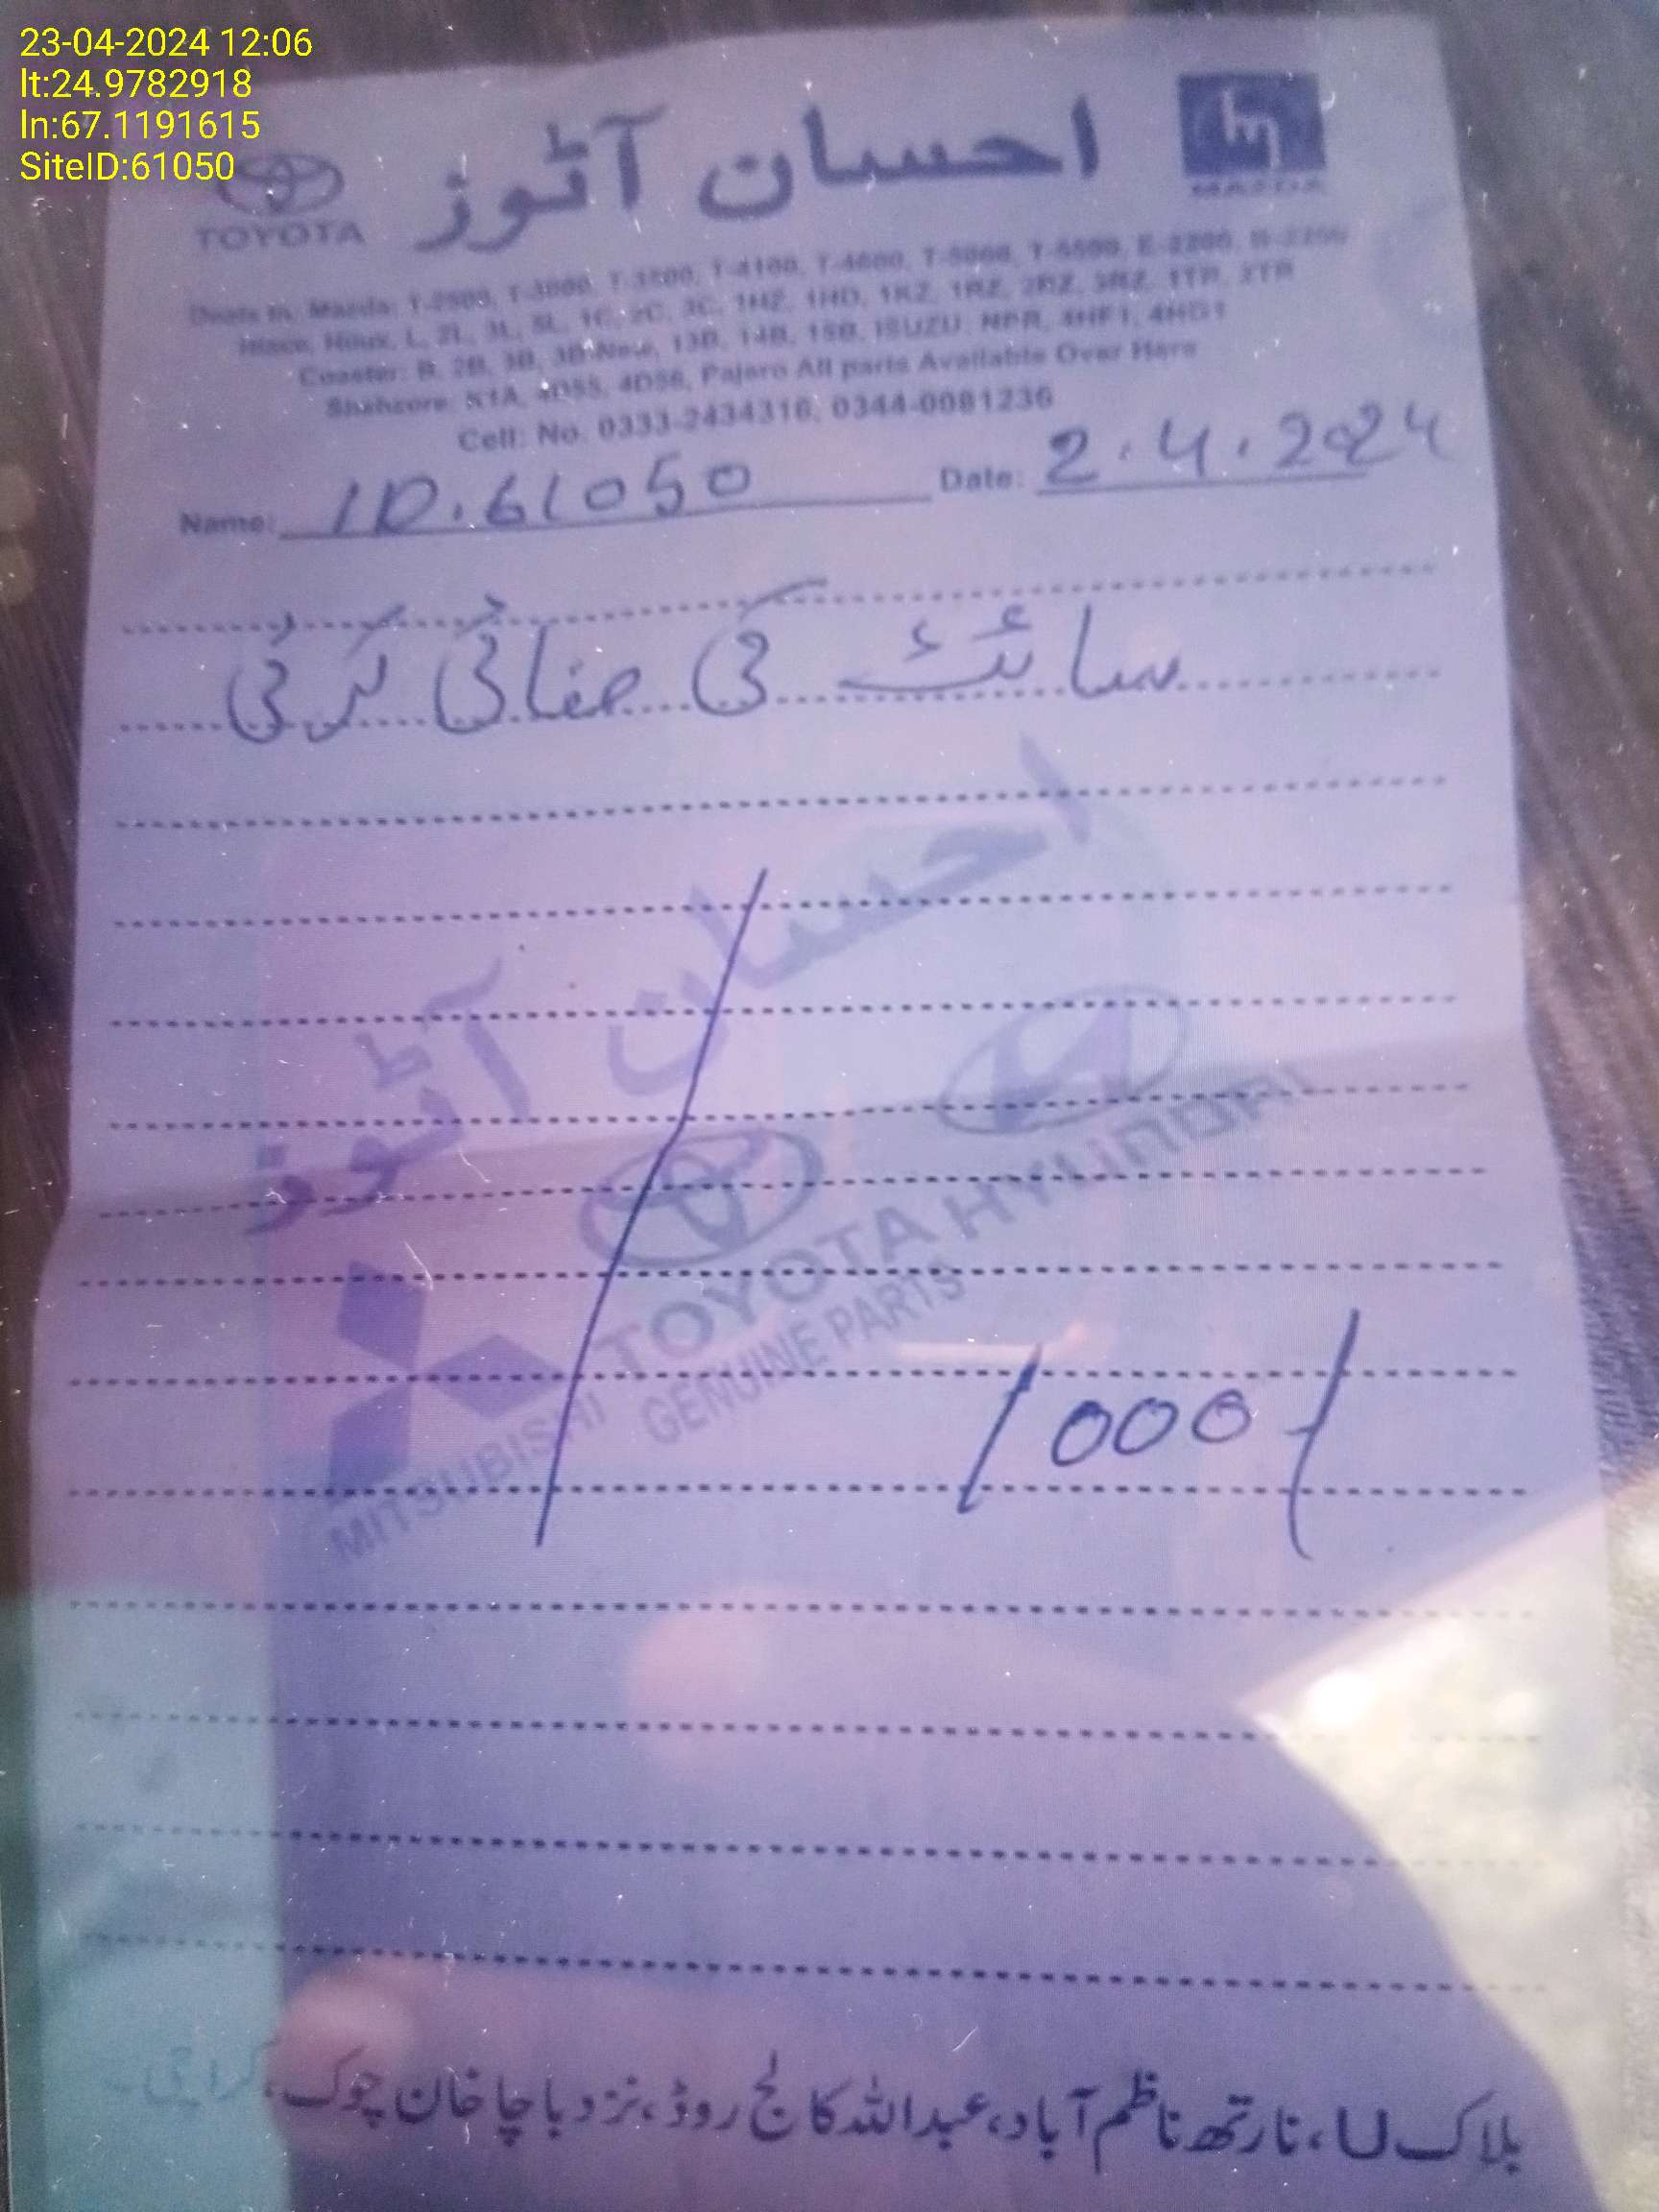 23-04-2024 12:06
lt:24.9782918
ln:67.1191615
SiteID:61050
TOYOTA
احسان آٹوز
MAZDA
Deals in: Mazda: T-2500, T-3000, T-3500, T-4100, T-4600, T-5000, T-5500, E-2200, R-2200
Hiace, Hilux, L, 2L, 3L, 5L, 1C, 2C, 3C, 1HZ, 1HD, 1KZ, 1RZ, 2RZ, 3RZ, 1TR, 2TR
Coaster: B, 2B, 3B, 3B-New, 13B, 14B, 15B, ISUZU, NPR, 4HF1, 4HG1
Shahzore: S1A, 4D55, 4D56, Pajero All parts Available Over Here
Cell: No. 0333-2434316, 0344-0081236
Name: ID.61050 Date: 2.4.2024
سائٹ کی صفائی کرئی
احسان آٹوز
TOYOTA HYUNDAI
MITSUBISHI
GENUINE PARTS
1000/
بلاک U، نارتھ ناظم آباد، عبداللہ کالج روڈ، نزد باچا خان چوک، کراچی۔